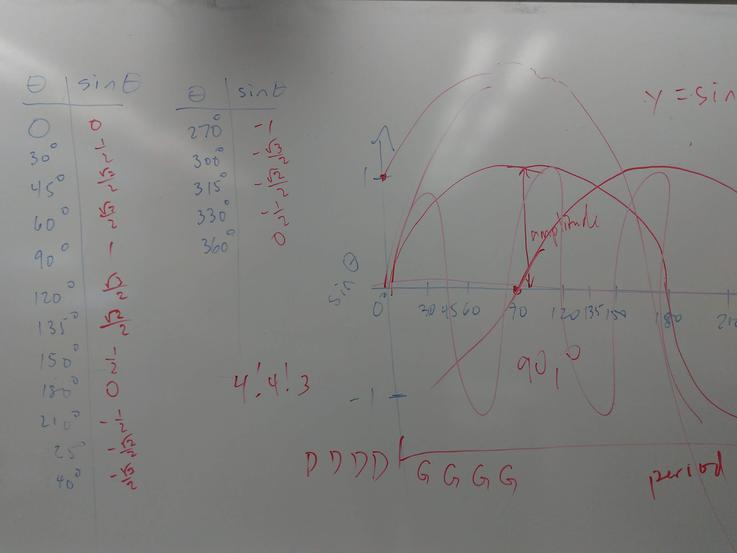 θ sinθ
0 0
30° 1/2
45° √2/2
60° √3/2
90° 1
120° √3/2
135° √2/2
150° 1/2
180° 0
210° -1/2
25° -√2/2
40° -√3/2
θ sinθ
270° -1
300° -√3/2
315° -√2/2
330° -1/2
360° 0
4!4!3
y = sin
1
amplitude
sin θ
0° 30 45 60 90 120 135 150 180 210
90,0
-1
D D D D G G G G
period